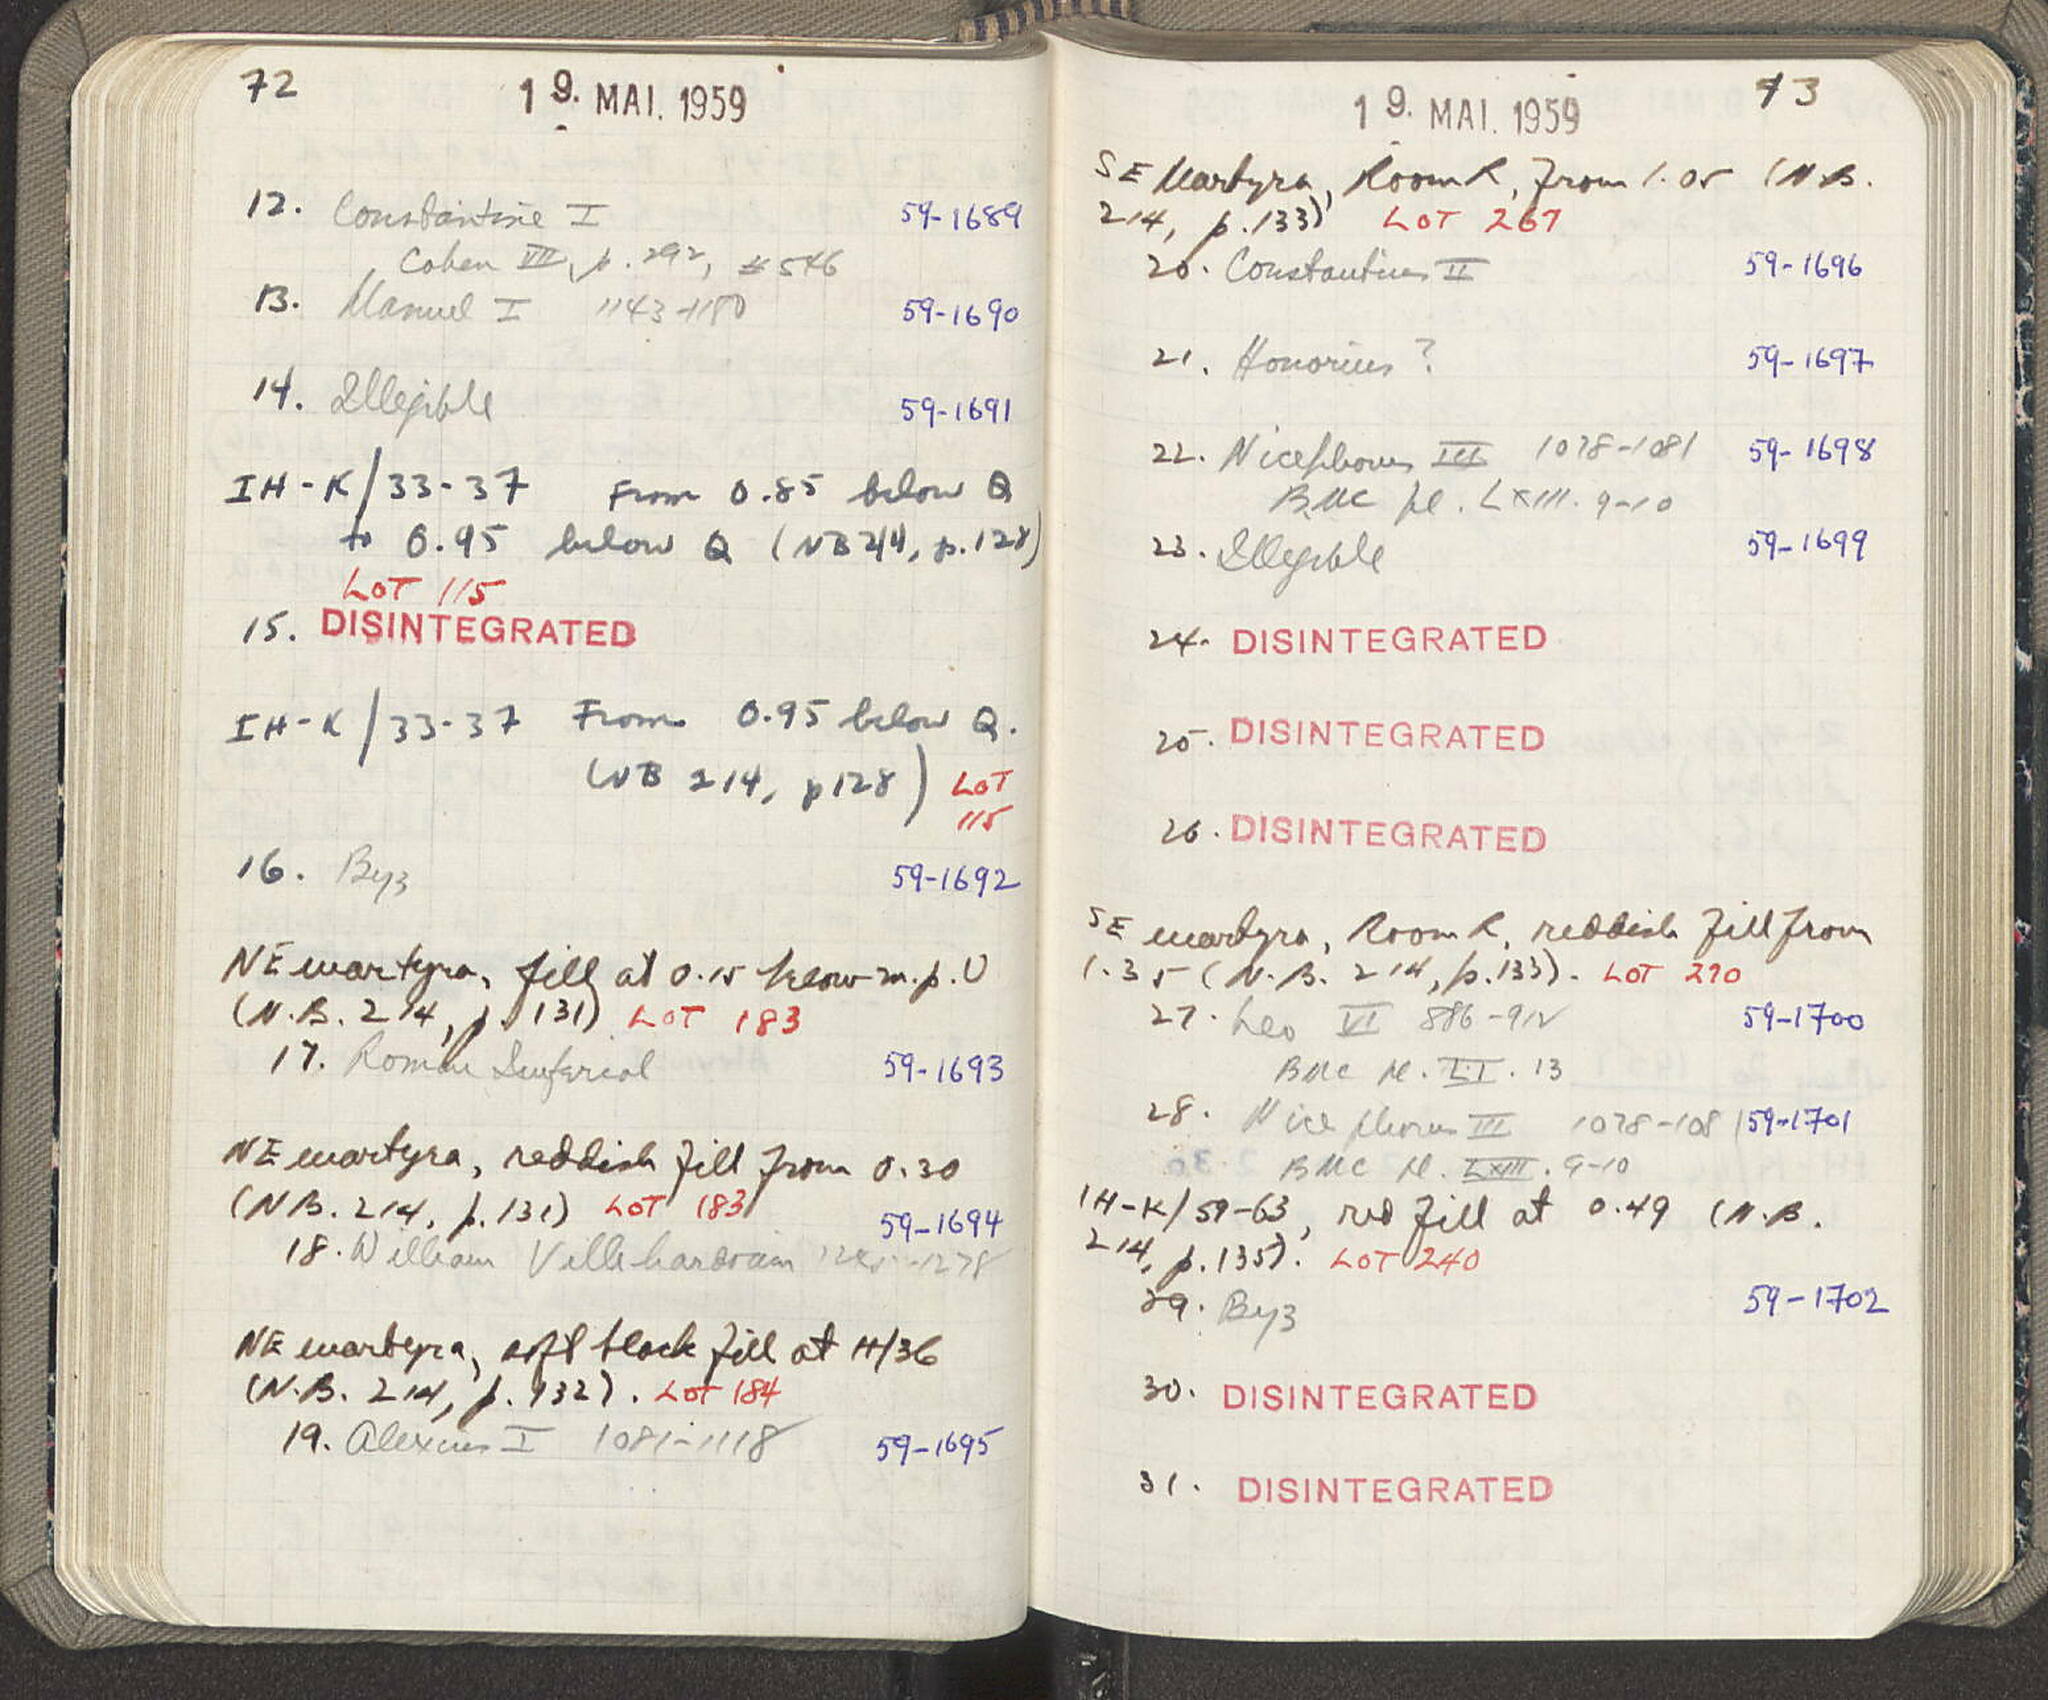 72
19. MAI. 1959
12. Constantine I 59-1689
Cohen VII, p. 292, #546
13. Manuel I 1143-1180 59-1690
14. Illegible 59-1691
IH-K/33-37 From 0.85 below Q
to 0.95 below Q (NB 214, p.128)
LOT 115
15. DISINTEGRATED
IH-K/33-37 From 0.95 below Q.
(NB 214, p128) LOT
115
16. Byz 59-1692
NE martyra, fill at 0.15 below m.p. U
(N.B. 214, p. 131) LOT 183
17. Roman Imperial 59-1693
NE martyra, reddish fill from 0.30
(NB. 214, p.131) LOT 183
59-1694
18. William Villehardouin -1278
NE martyra, soft black fill at H/36
(N.B. 214, p. 132). LOT 184
19. Alexius I 1081-1118 59-1695
73
19. MAI. 1959
SE Martyra, Room R, from 1.05 (N.B.
214, p.133) LOT 267
20. Constantius II 59-1696
21. Honorius? 59-1697
22. Nicephorus III 1078-1081 59-1698
BMC pl. LXIII. 9-10
23. Illegible 59-1699
24. DISINTEGRATED
25. DISINTEGRATED
26. DISINTEGRATED
SE martyra, Room R, reddish fill from
1.35 (N.B. 214, p.133). LOT 270
27. Leo VI 886-912 59-1700
BMC pl. LI. 13
28. Nicephorus III 1078-1081 59-1701
BMC pl. LXIII. 9-10
IH-K/59-63, red fill at 0.49 (N.B.
214, p.135). LOT 240
29. Byz 59-1702
30. DISINTEGRATED
31. DISINTEGRATED